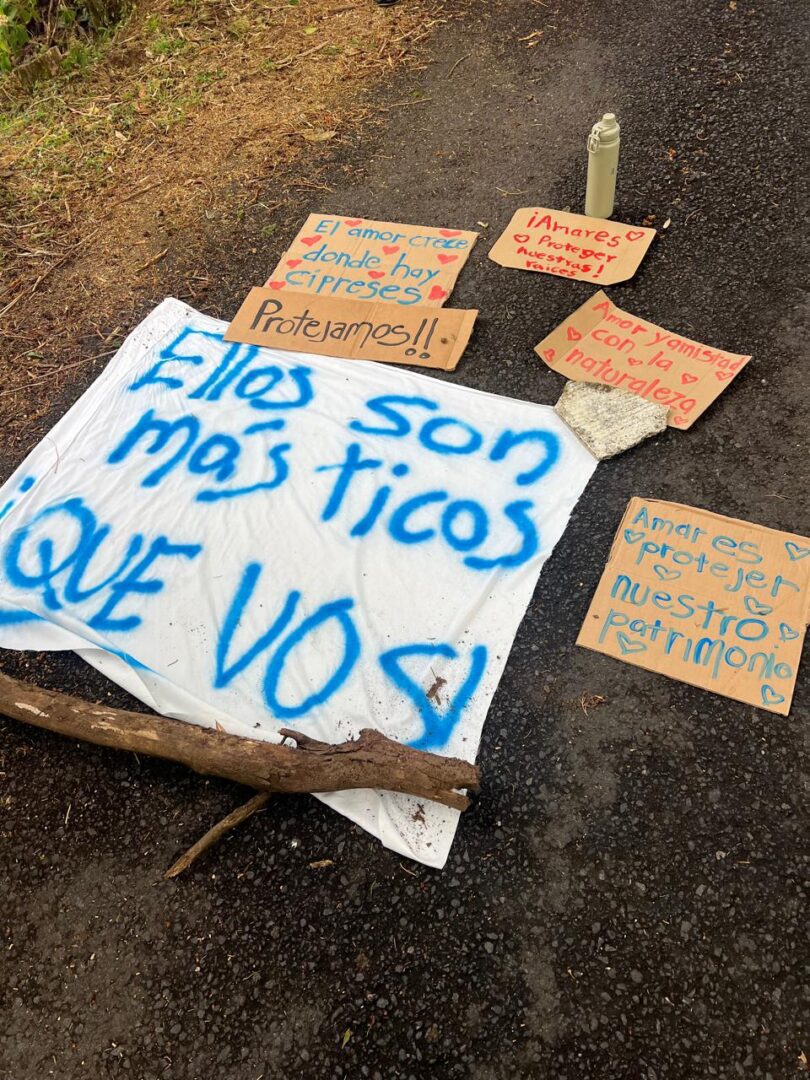 El amor crece
donde hay
cipreses
Protejamos!!
¡Amares
Proteger
nuestras
raices!
Amor y amistad
con la
naturaleza
Ellos son
más ticos
¡QUE VOS!
Amar es
protejer
nuestro
patrimonio